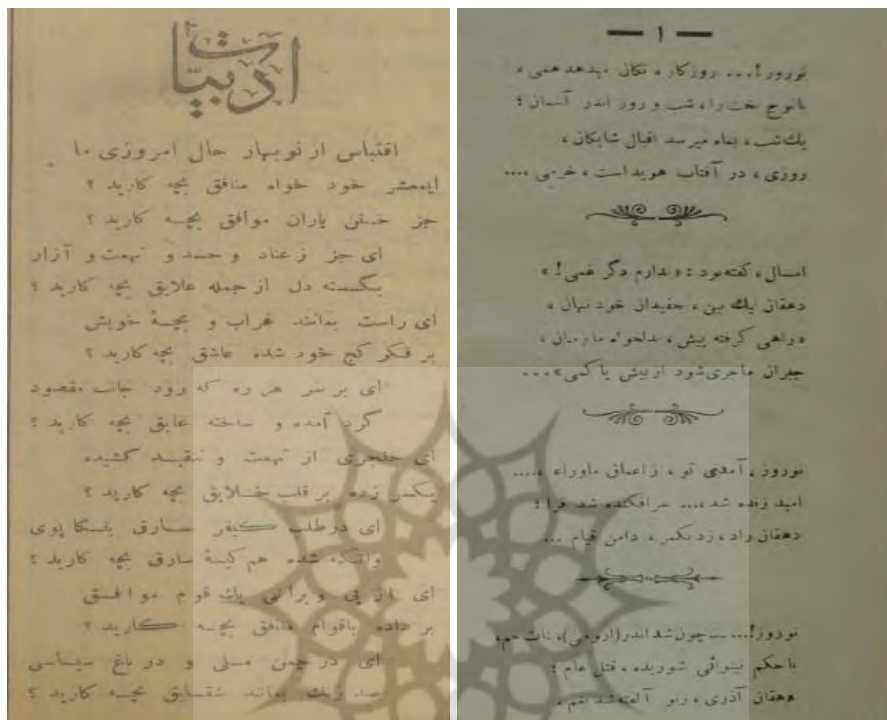 — ۱ —
نوروز!... روزگار، تکان میدهد همی،
شب و روز اندر آسمان؛
یکشب، بماه میرسد اقبال شایگان،
روزی، در آفتاب هویداست، خرمی ....
امسال، گفته بود: «ندارم دگر غمی!»
دهقان نیک بین،
راهی گرفته پیش،
جبران ماجری شود از بیش یا کمی»...
نوروز، آمدی تو، ز اعماق ماوراء ....
امید زنده شد.... سرافکنده شد فرا؛
دهقان راد، زد بکمر، دامن قیام ...
نوروز!... چون شد اندر (ارومی)،
با حکم نینوائی شوریده، قتل عام؛
دهقان آذری،
ادبیات
اقتباس از نوبهار حال امروزی ما
ایمعشر خود خواه منافق بچه کارید ؟
جز خستن یاران موافق بچه کارید ؟
ای جز ز عناد و حسد و تهمت و آزار
بگسسته دل از جمله علایق بچه کارید ؟
ای راست بمانند غراب و بچهٔ خویش
بر فکر کج خود شده عاشق بچه کارید ؟
ای بر سر هر ره که رود جانب مقصود
گرد آمده و ساخته عایق بچه کارید ؟
ای خنجری از تهمت و تنقید کشیده
یکسر زده بر قلب خلایق بچه کارید ؟
ای در طلب کیفر سارق بتکاپوی
وانگه شده هم کیسهٔ سارق بچه کارید ؟
ای از پی ویرانی یک قوم موافق
بر داده باقوام منافق بچه کارید ؟
ای در چمن ملی و در باغ سیاسی
صد رنگ بمانند شقایق بچه کارید ؟